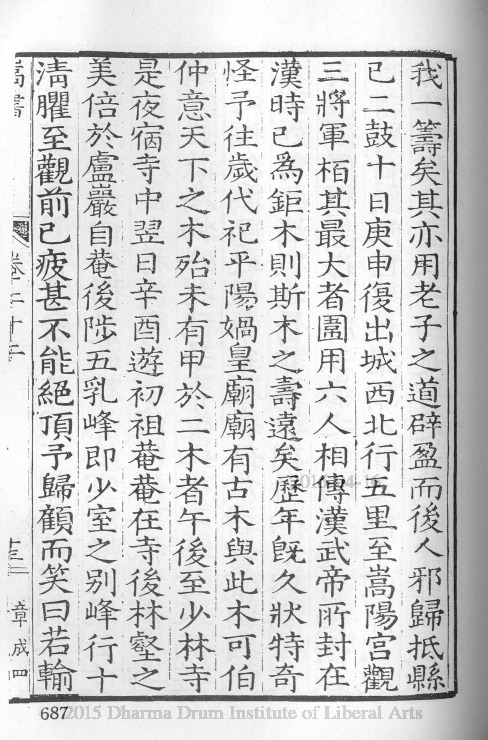 我一籌矣其亦用老子之道辟盈而後人邪歸抵縣
已二鼓十日庚申復出城西北行五里至嵩陽宫觀
三將軍栢其最大者圍用六人相傳漢武帝所封在
漢時已為鉅木則斯木之壽遠矣歷年既久狀特奇
怪予往歲代祀平陽媧皇廟廟有古木與此木可伯
仲意天下之木殆未有甲於二木者午後至少林寺
是夜宿寺中翌日辛酉遊初祖菴菴在寺後林壑之
美倍於盧巖自菴後陟五乳峰即少室之别峰行十
淸臞至觀前已疲甚不能絕頂予歸顧而笑曰若輸
嵩書
卷二十二
十三
章成四
687
2015 Dharma Drum Institute of Liberal Arts